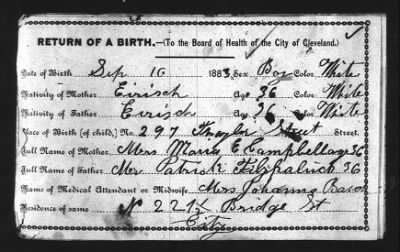 RETURN OF A BIRTH.—(To the Board of Health of the City of Cleveland.)
Date of Birth Sep 10 1883 Sex, Boy Color White
Nativity of Mother Eirisch Age 36 Color White
Nativity of Father Eirisch Age 36 Color White
Place of Birth (of child,) No. 297 Street Street.
Full Name of Mother Mrs Maria E Campbell age 36
Full Name of Father Mr Patrick Fitzpatrick 36
Name of Medical Attendant or Midwife, Mrs Johanna
Residence of same N 221½ Bridge St
City